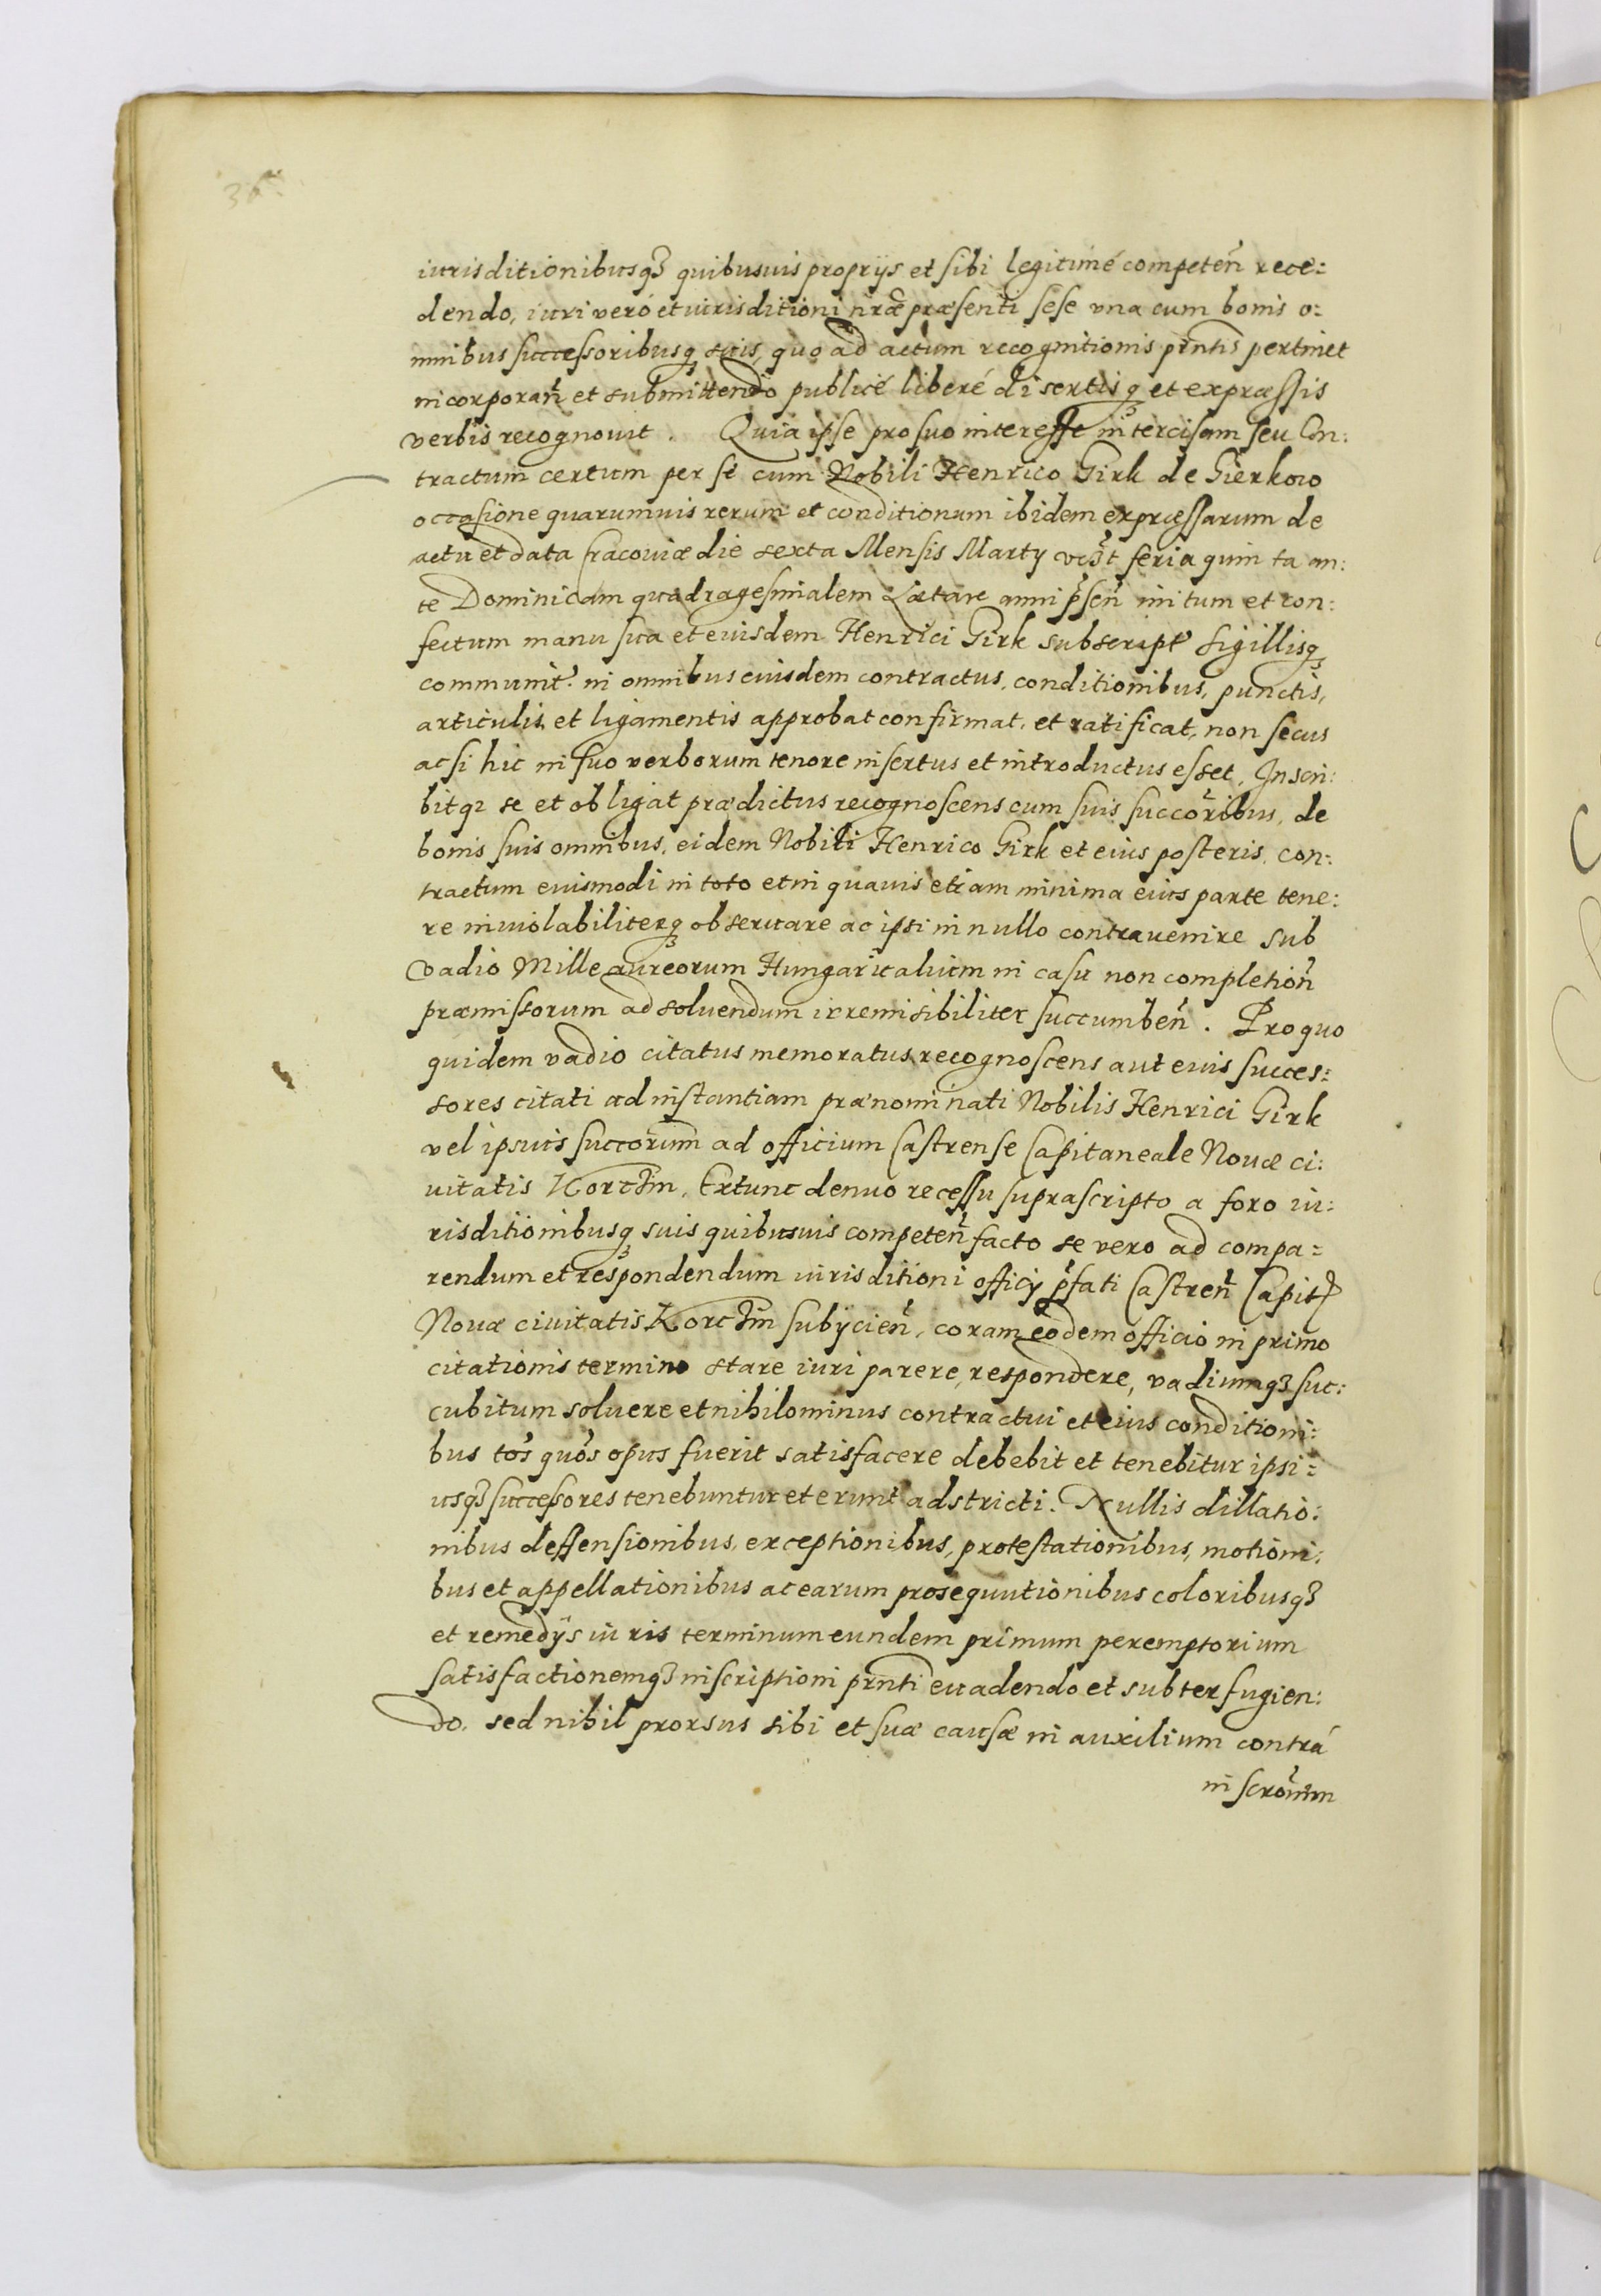 36
iurisditionibusq3 quibusuis proprijs et sibi legitimé competen̄ rece:
dendo, iuri veró et iurisditioni nr̄æ præsenti sese vna cum bonis o:
mnibus successoribusq3 suis, quo ad actum recognitionis pr̄ntis pertinet
incorporan̄ et submittendo publicé liberé disertisq3 et expræssis
verbis recognouit. Quia ipse pro suo interesse intercisam seu Con:
tractum certum per se cum Nobili Henrico Girk de Gierkow
occasione quarumuis rerum et conditionum ibidem expræssarum de
actu et data Cracouiæ die sexta Mensis Martÿ vc3t feria quinta an:
te Dominicam quadragesimalem Lætare anni p̄sen̄ initum et con:
fectum manu sua et eiusdem Henrici Girk subscript sigillisq3
communit in omnibus eiusdem contractus, conditionibus, punctis,
articulis et ligamentis approbat confirmat, et ratificat, non secus
ac si hic in suo verborum tenore insertus et introductus esset, Inscri:
bitq3 se et obligat prædictus recognoscens cum suis succōribus, de
bonis suis omnibus, eidem Nobili Henrico Girk et eius posteris, con:
tractum eiusmodi in toto et in quauis etiam minima eius parte tene:
re inuiolabiliterq3 obseruare ac ipsi in nullo contrauenire sub
vadio Mille aureorum Hungaricalium in casu non completion̄
præmissorum ad soluendum irremisibiliter succumben̄. Pro quo
quidem vadio citatus memoratus recognoscens aut eius succes:
sores citati ad instantiam prænominati Nobilis Henrici Girk
vel ipsuis succōrum ad officium Castrense Capitaneale Nouæ ci:
uitatis Korczin, Extunc denuo recessu suprascripto a foro iu:
risditionibusq3 suis quibusuis competen̄ facto se vero ad compa:
rendum et respondendum iurisditioni officÿ p̄fati Castren̄ Capit
Nouæ ciuitatis Korczin subÿcien̄, coram eodem officio in primo
citationis termino stare iuri parere, respondere, vadiumq3 suc:
cubitum soluere et nihilominus contractui et eius conditioni:
bus tōs quōs opus fuerit satisfacere debebit et tenebitur ipsi:
usq3 successores tenebuntur et erunt adstricti. Nullis dillatio:
nibus deffensionibus, exceptionibus, protestationibus, motioni:
bus et appellationibus ac earum prosequutionibus coloribusq3
et remedÿs iuris terminum eundem primum peremptorium
satisfactionemq3 inscriptioni pr̄nti euadendo et subterfugien:
do, sed nihil prorsus sibi et suæ causæ in auxilium contrá
inscrōnem